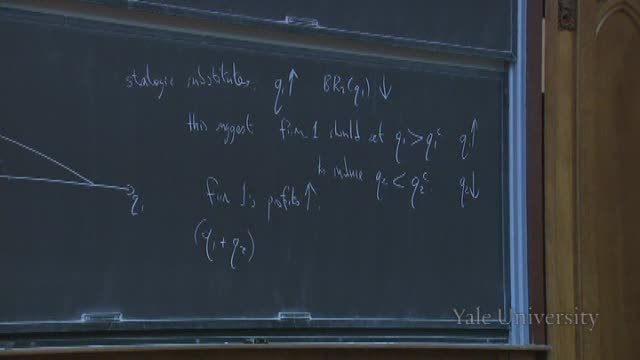 stategic substitutes. q₁↑ BR₂(q₁) ↓
this suggest firm 1 should set q₁ > q₁ᶜ q₁↑
to induce q₂ < q₂ᶜ q₂↓
firm 1's profits ↑.
(q₁ + q₂)
q₁
Yale University